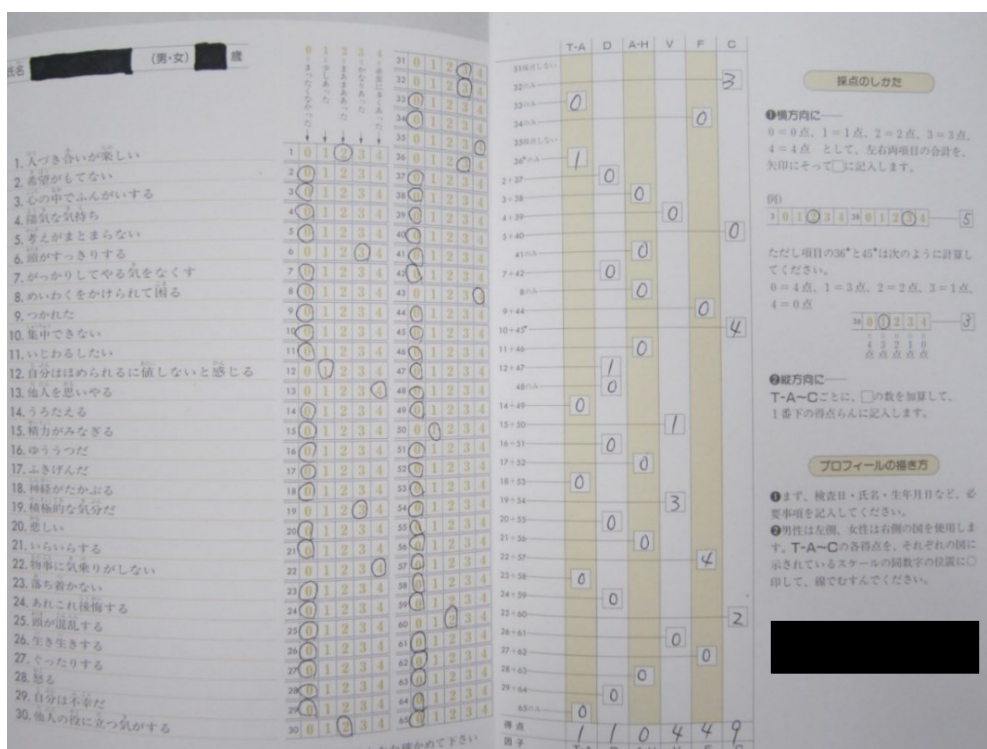 氏名 (男・女) 歳
0=まったくなかった
1=少しあった
2=まあまああった
3=かなりあった
4=非常に多くあった
1.人づき合いが楽しい
2.希望がもてない
3.心の中でふんがいする
4.陽気な気持ち
5.考えがまとまらない
6.頭がすっきりする
7.がっかりしてやる気をなくす
8.めいわくをかけられて困る
9.つかれた
10.集中できない
11.いじわるしたい
12.自分はほめられるに値しないと感じる
13.他人を思いやる
14.うろたえる
15.精力がみなぎる
16.ゆううつだ
17.ふきげんだ
18.神経がたかぶる
19.積極的な気分だ
20.悲しい
21.いらいらする
22.物事に気乗りがしない
23.落ち着かない
24.あれこれ後悔する
25.頭が混乱する
26.生き生きする
27.ぐったりする
28.怒る
29.自分は不幸だ
30.他人の役に立つ気がする
1 0 1 2 3 4
2 0 1 2 3 4
3 0 1 2 3 4
4 0 1 2 3 4
5 0 1 2 3 4
6 0 1 2 3 4
7 0 1 2 3 4
8 0 1 2 3 4
9 0 1 2 3 4
10 0 1 2 3 4
11 0 1 2 3 4
12 0 1 2 3 4
13 0 1 2 3 4
14 0 1 2 3 4
15 0 1 2 3 4
16 0 1 2 3 4
17 0 1 2 3 4
18 0 1 2 3 4
19 0 1 2 3 4
20 0 1 2 3 4
21 0 1 2 3 4
22 0 1 2 3 4
23 0 1 2 3 4
24 0 1 2 3 4
25 0 1 2 3 4
26 0 1 2 3 4
27 0 1 2 3 4
28 0 1 2 3 4
29 0 1 2 3 4
30 0 1 2 3 4
31 0 1 2 3 4
32 0 1 2 3 4
33 0 1 2 3 4
34 0 1 2 3 4
35 0 1 2 3 4
36 0 1 2 3 4
37 0 1 2 3 4
38 0 1 2 3 4
39 0 1 2 3 4
40 0 1 2 3 4
41 0 1 2 3 4
42 0 1 2 3 4
43 0 1 2 3 4
44 0 1 2 3 4
45 0 1 2 3 4
46 0 1 2 3 4
47 0 1 2 3 4
48 0 1 2 3 4
49 0 1 2 3 4
50 0 1 2 3 4
51 0 1 2 3 4
52 0 1 2 3 4
53 0 1 2 3 4
54 0 1 2 3 4
55 0 1 2 3 4
56 0 1 2 3 4
57 0 1 2 3 4
58 0 1 2 3 4
59 0 1 2 3 4
60 0 1 2 3 4
61 0 1 2 3 4
62 0 1 2 3 4
63 0 1 2 3 4
64 0 1 2 3 4
65 0 1 2 3 4
確かめて下さい
T-A D A-H V F C
31採点しない
32のみ 3
33のみ 0
34のみ 0
35採点しない
36*のみ 1
2+37 0
3+38 0
4+39 0
5+40 0
41のみ 0
7+42 0
8のみ 0
9+44 0
10+45* 4
11+46 0
12+47 1
48のみ 0
14+49 0
15+50 1
16+51 0
17+52 0
18+53 0
19+54 3
20+55 0
21+56 0
22+57 4
23+58 0
24+59 0
25+60 2
26+61 0
27+62 0
28+63 0
29+64 0
65のみ 0
得点 1 1 0 4 4 9
因子 T-A D A-H V F C
採点のしかた
❶横方向に──
0=0点、1=1点、2=2点、3=3点、
4=4点 として、左右両項目の合計を、
矢印にそって□に記入します。
例)
3 0 1 2 3 4 38 0 1 2 3 4 5
ただし項目の36*と45*は次のように計算し
てください。
0=4点、1=3点、2=2点、3=1点、
4=0点
36 0 1 2 3 4 3
4 3 2 1 0
点 点 点 点 点
❷縦方向に──
T-A~Cごとに、□の数を加算して、
1番下の得点らんに記入します。
プロフィールの描き方
❶まず、検査日・氏名・生年月日など、必
要事項を記入してください。
❷男性は左側、女性は右側の図を使用しま
す。T-A~Cの各得点を、それぞれの図に
示されているスケールの同数字の位置に○
印して、線でむすんでください。